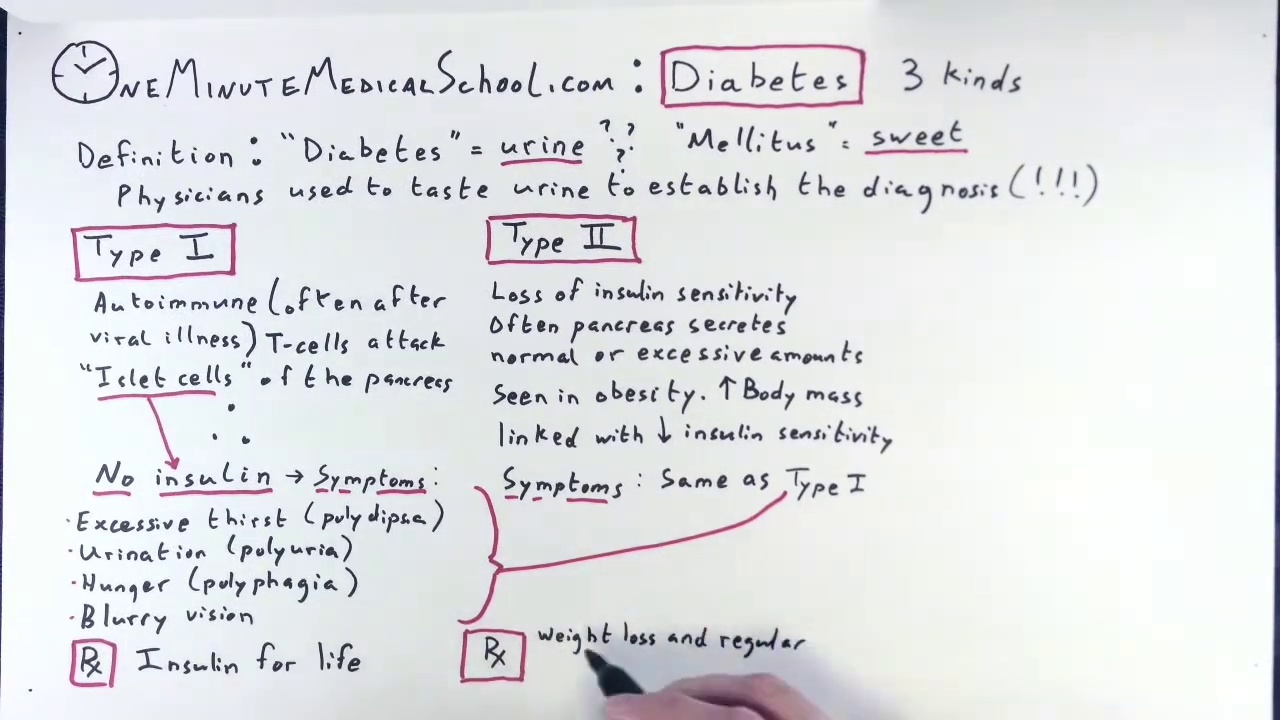 OneMinuteMedicalSchool.com : Diabetes 3 kinds
Definition : "Diabetes" = urine ??? "Mellitus" = sweet
Physicians used to taste urine to establish the diagnosis (!!!)
Type I
Autoimmune (often after
viral illness) T-cells attack
"Islet cells" of the pancreas
No insulin → Symptoms :
· Excessive thirst (polydipsia)
· Urination (polyuria)
· Hunger (polyphagia)
· Blurry vision
Rx Insulin for life
Type II
Loss of insulin sensitivity
Often pancreas secretes
normal or excessive amounts
Seen in obesity. ↑ Body mass
linked with ↓ insulin sensitivity
Symptoms : Same as Type I
Rx weight loss and regular